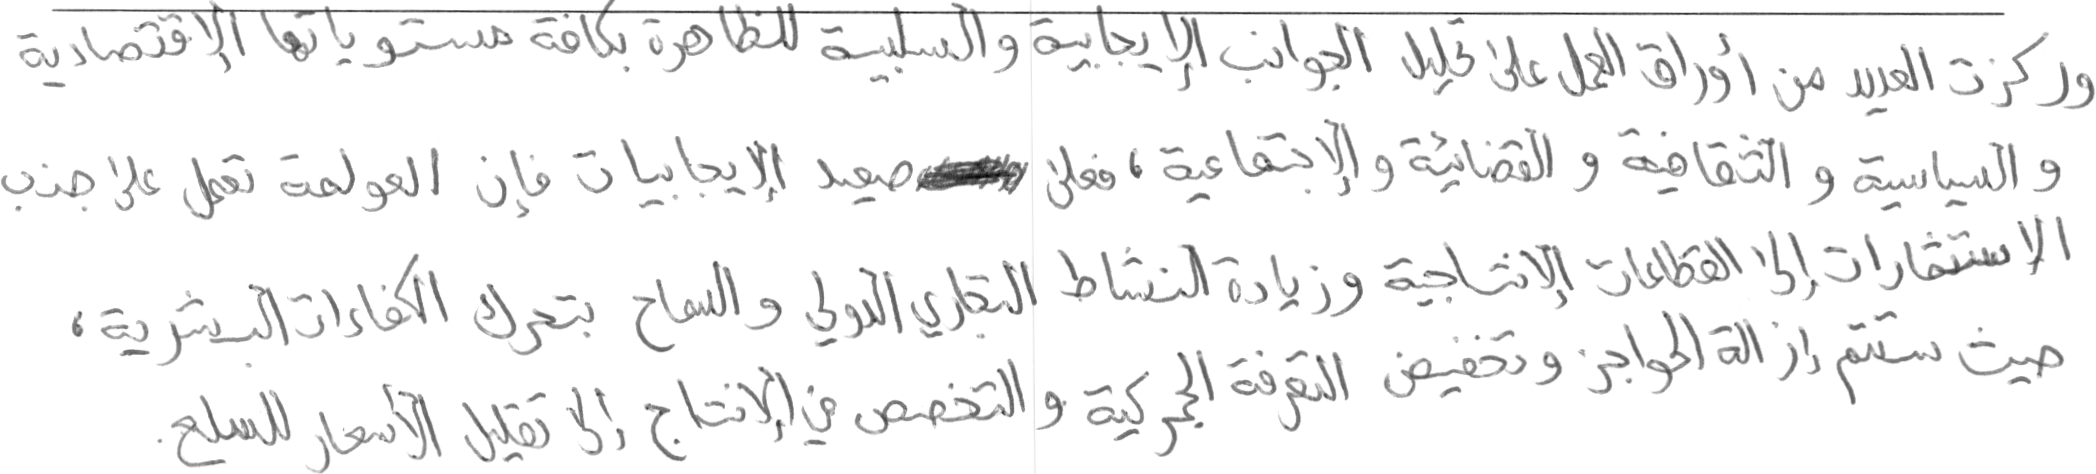 وركزت العديد من أوراق العمل على تحليل الجوانب الإيجابية والسلبية للظاهرة بكافة مستوياتها الإقتصادية
و السياسية و الثقافية و القضائية و الإجتماعية ، فعلى صعيد الإيجابيات فإن العولمة تعمل على جذب
الاستثمارات إلى القطاعات الإنتاجية وزيادة النشاط التجاري الدولي والسماح بتحرك الكفاءات البشرية ،
حيث ستتم إزالة الحواجز وتخفيض التعرفة الجمركية و التخصص في الإنتاج إلى تقليل الأسعار للسلع .